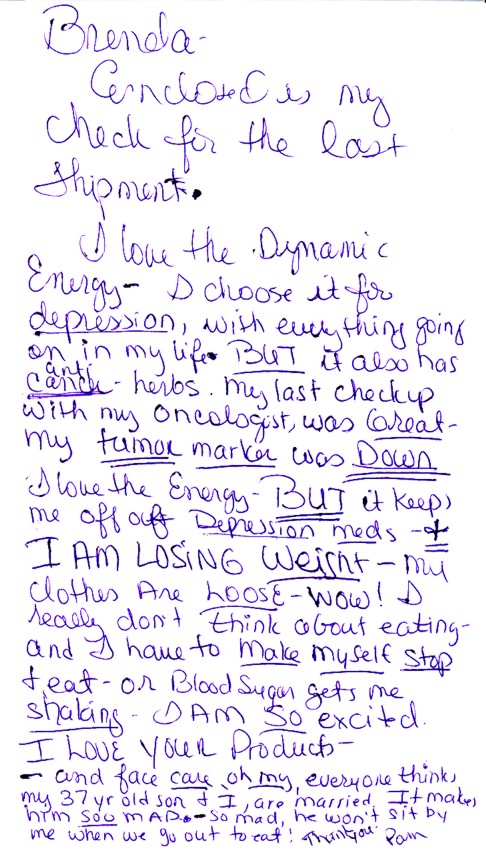 Brenda-
Enclosed is my
check for the last
shipment.
I love the Dynamic
Energy- I choose it for
depression, with everything going
on in my life. BUT it also has
anti
cancer - herbs. my last checkup
with my oncologist, was Great-
my tumor marker was Down
I love the Energy- BUT it keeps
me off off Depression meds - +
I AM LOSING Weight - my
clothes Are Loose - WOW! I
really don't think about eating-
and I have to make myself stop
+ eat - or Blood Sugar gets me
shaking - I AM So excited.
I LOVE YOUR Products-
- and face care, oh my, everyone thinks
my 37 yr old son + I, are married. It makes
him soo MAD. - So mad, he won't sit by
me when we go out to eat! Thank you Pam